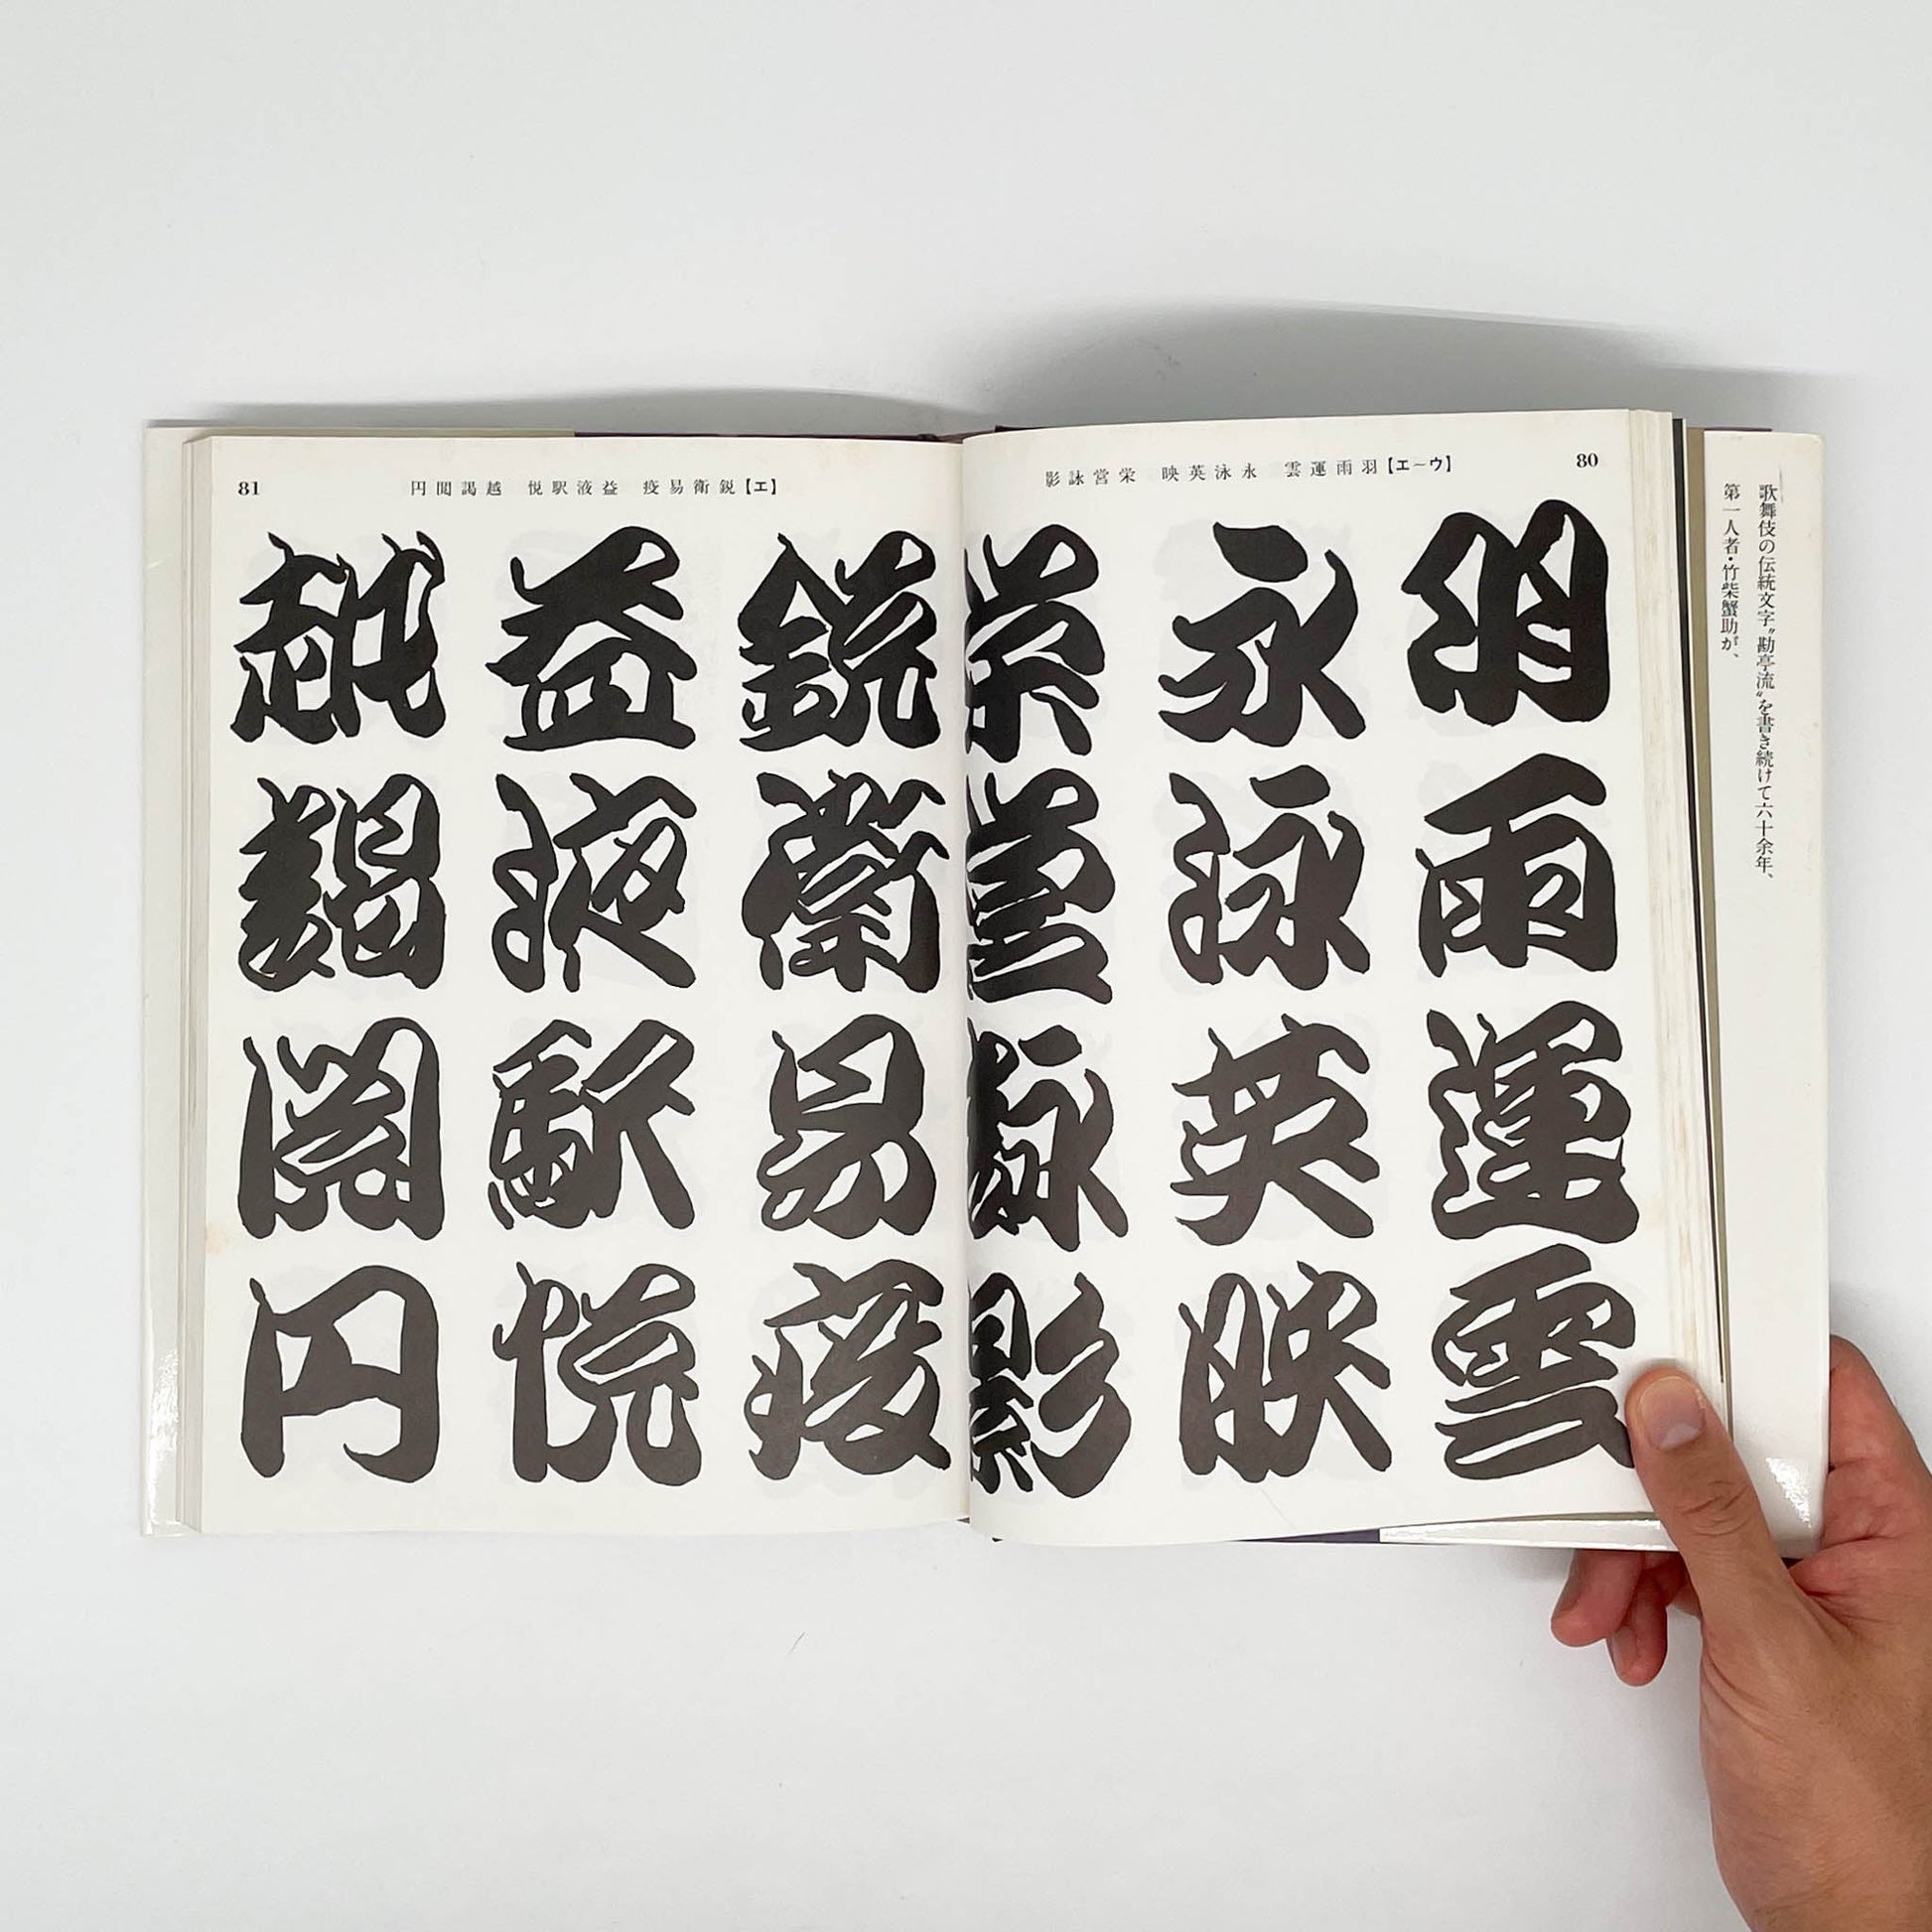 歌舞伎の伝統文字〝勘亭流〟を書き続けて六十余年、
第一人者・竹柴蟹助が、
80
【ウ〜エ】羽雨運雲 永泳英映 栄営詠影
羽雨運雲
永泳英映
栄営詠影
【エ】鋭衛易疫 益液駅悦 越謁閲円
81
鋭衛易疫
益液駅悦
越謁閲円